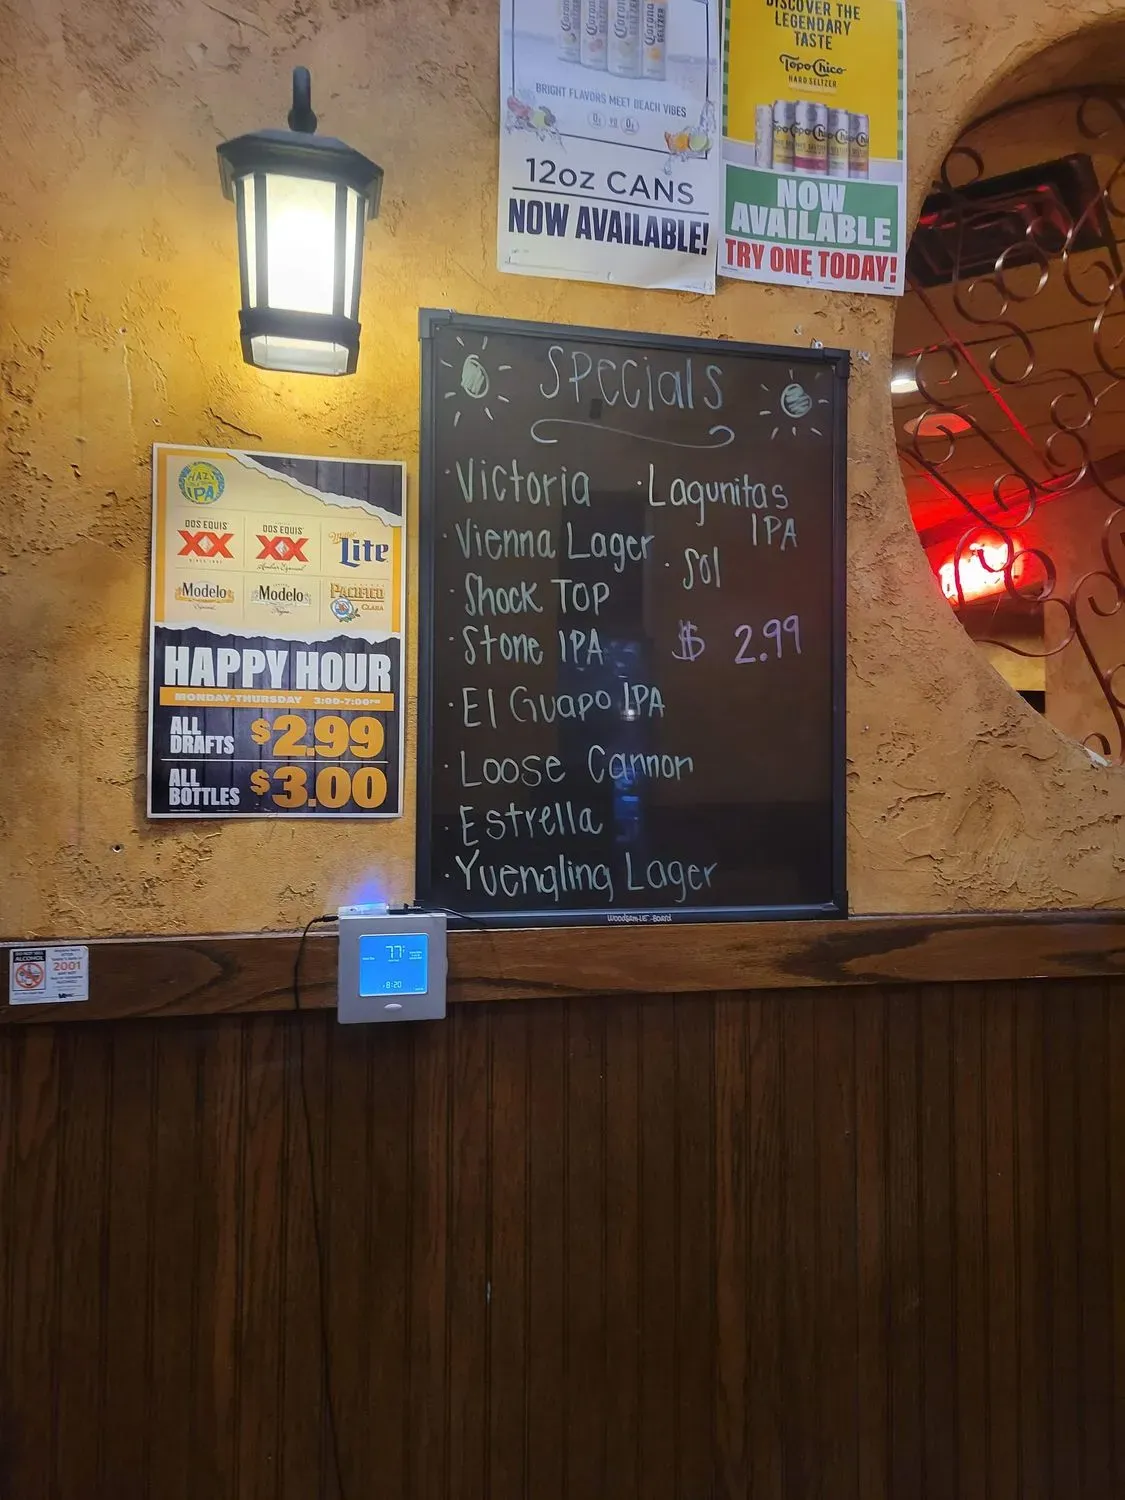 Corona SELTZER
BRIGHT FLAVORS MEET BEACH VIBES
12oz CANS
NOW AVAILABLE!
DISCOVER THE
LEGENDARY
TASTE
Topo Chico
HARD SELTZER
NOW
AVAILABLE
TRY ONE TODAY!
HAZY
IPA
DOS EQUIS
XX
DOS EQUIS
XX
Miller
Lite
Modelo
Especial
Modelo
Negra
PACIFICO
CLARA
HAPPY HOUR
MONDAY-THURSDAY 3:00-7:00PM
ALL
DRAFTS
$2.99
ALL
BOTTLES
$3.00
SPECIALS
· Victoria
· Vienna Lager
· Shock TOP
· Stone IPA
· El Guapo IPA
· Loose Cannon
· Estrella
· Yuengling Lager
· Lagunitas
IPA
· Sol
$ 2.99
Woodsam-LE-Board
77°
8:20
DO NOT SELL
ALCOHOL
2001